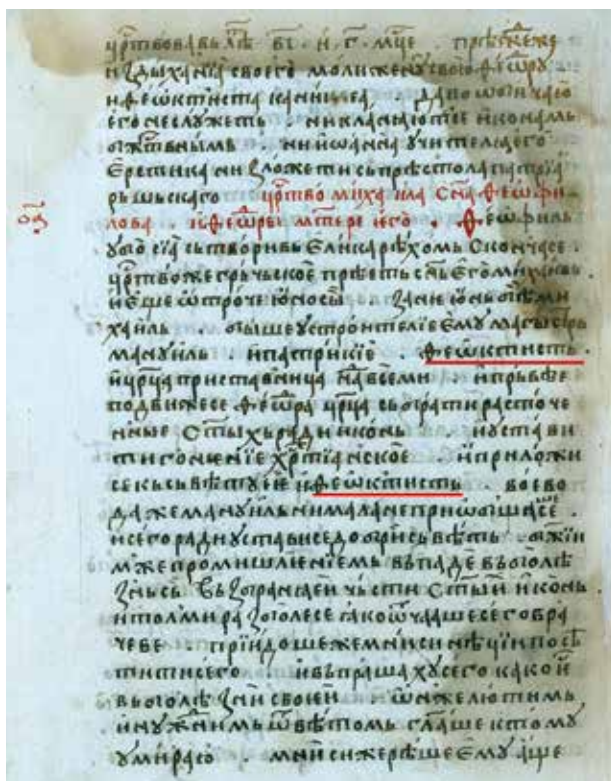 црⷭ҇твовавь лѣⷮ вї . и . г҃ . мⷭ҇це . прѣжⷣе же
издыханїа своего моли женꙋ свою ѳеѡⷣрꙋ
и ѳеѡктиста каниклеа , да по
его не слꙋжеть . ни кланꙗютсе иконамь
бжⷭ҇твнымь . ни иѡанна ꙋчителꙗ его
еретика низложети сь прѣстола патрїа
рьшьскаго црⷭ҇тво михаила сн҃а ѳеѡфи
ѻ҃а
лова . и ѳеѡⷣры мт҃ере его . Ѳеѡфиль
ꙋбо сїа сьтворивь ꙗже рѣхомь скончасе .
црⷭ҇тво же грьчьское прѣеть сн҃ь его михаиль
и еще ѡтроче юно сы . занѥ юнь бѣ ми
хаиль . быше ꙋстроителїе емꙋ магїстрь
манꙋиль . и патрикїе . ѳеѡктисть .
и црⷪ҇ца приставница надь всеми . и прьвѣе
подвижесе ѳеѡⷣра црⷪ҇ца сьбрати расточе
нные с҃тыхь ради иконь . и ꙋстави
ти гонꙗнїе хрⷭ҇тїанское . и приложи
се кь сьвѣтꙋ ее и ѳеѡктисть . воево
да же манꙋиль ни мала не приѡбщашесе .
и сего ради ꙋстависе добри сьвѣть . бжїи
мже промишлѥнїемь вьпаде вь болѣ
знь сь вьзбранꙗеи чьсти с҃тыи иконь
и толми разболесе ꙗко ѡтчаꙗше се его вра
чеве . прїидоше же мниси нѣцїи посѣ
тити сего и вьпрашахꙋ сего како и
вь болѣзни своеи и ѡн же лютимь
и нꙋжнимь ѿвѣтомь гл҃аше к томꙋ
ꙋмираю . мниси же рѣше емꙋ аще